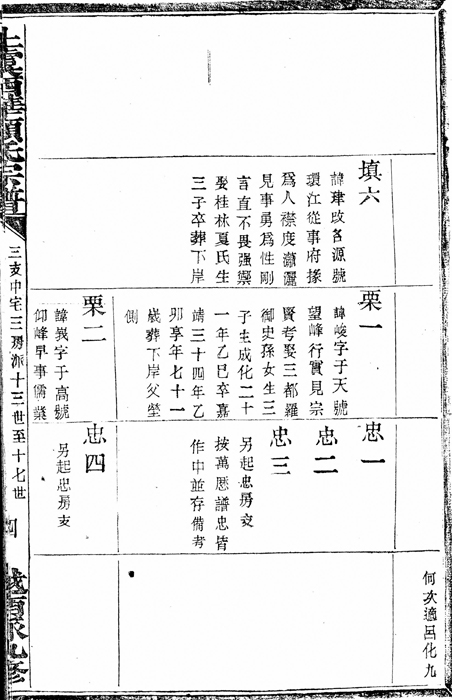 何次適呂化九
填六
諱珒改名源號
環江從事府掾
為人襟度瀟灑
見事勇為性剛
言直不畏强禦
娶桂林夏氏生
三子卒葬下岸
栗一
諱峻字于天號
望峰行實見宗
賢考娶三都羅
御史孫女生三
子生成化二十
一年乙巳卒嘉
靖三十四年乙
卯享年七十一
歲葬下岸父塋
側
栗二
諱峩字于高號
仰峰早事儒業
忠一
忠二
忠三
另起忠房支
按萬厯譜忠皆
作中並存備考
忠四
另起忠房支
上虞西華顧氏宗譜
三支中宅三房派十三世至十七世
四